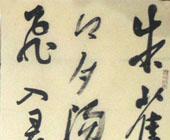 朱雀
口夕陽
飛入尋